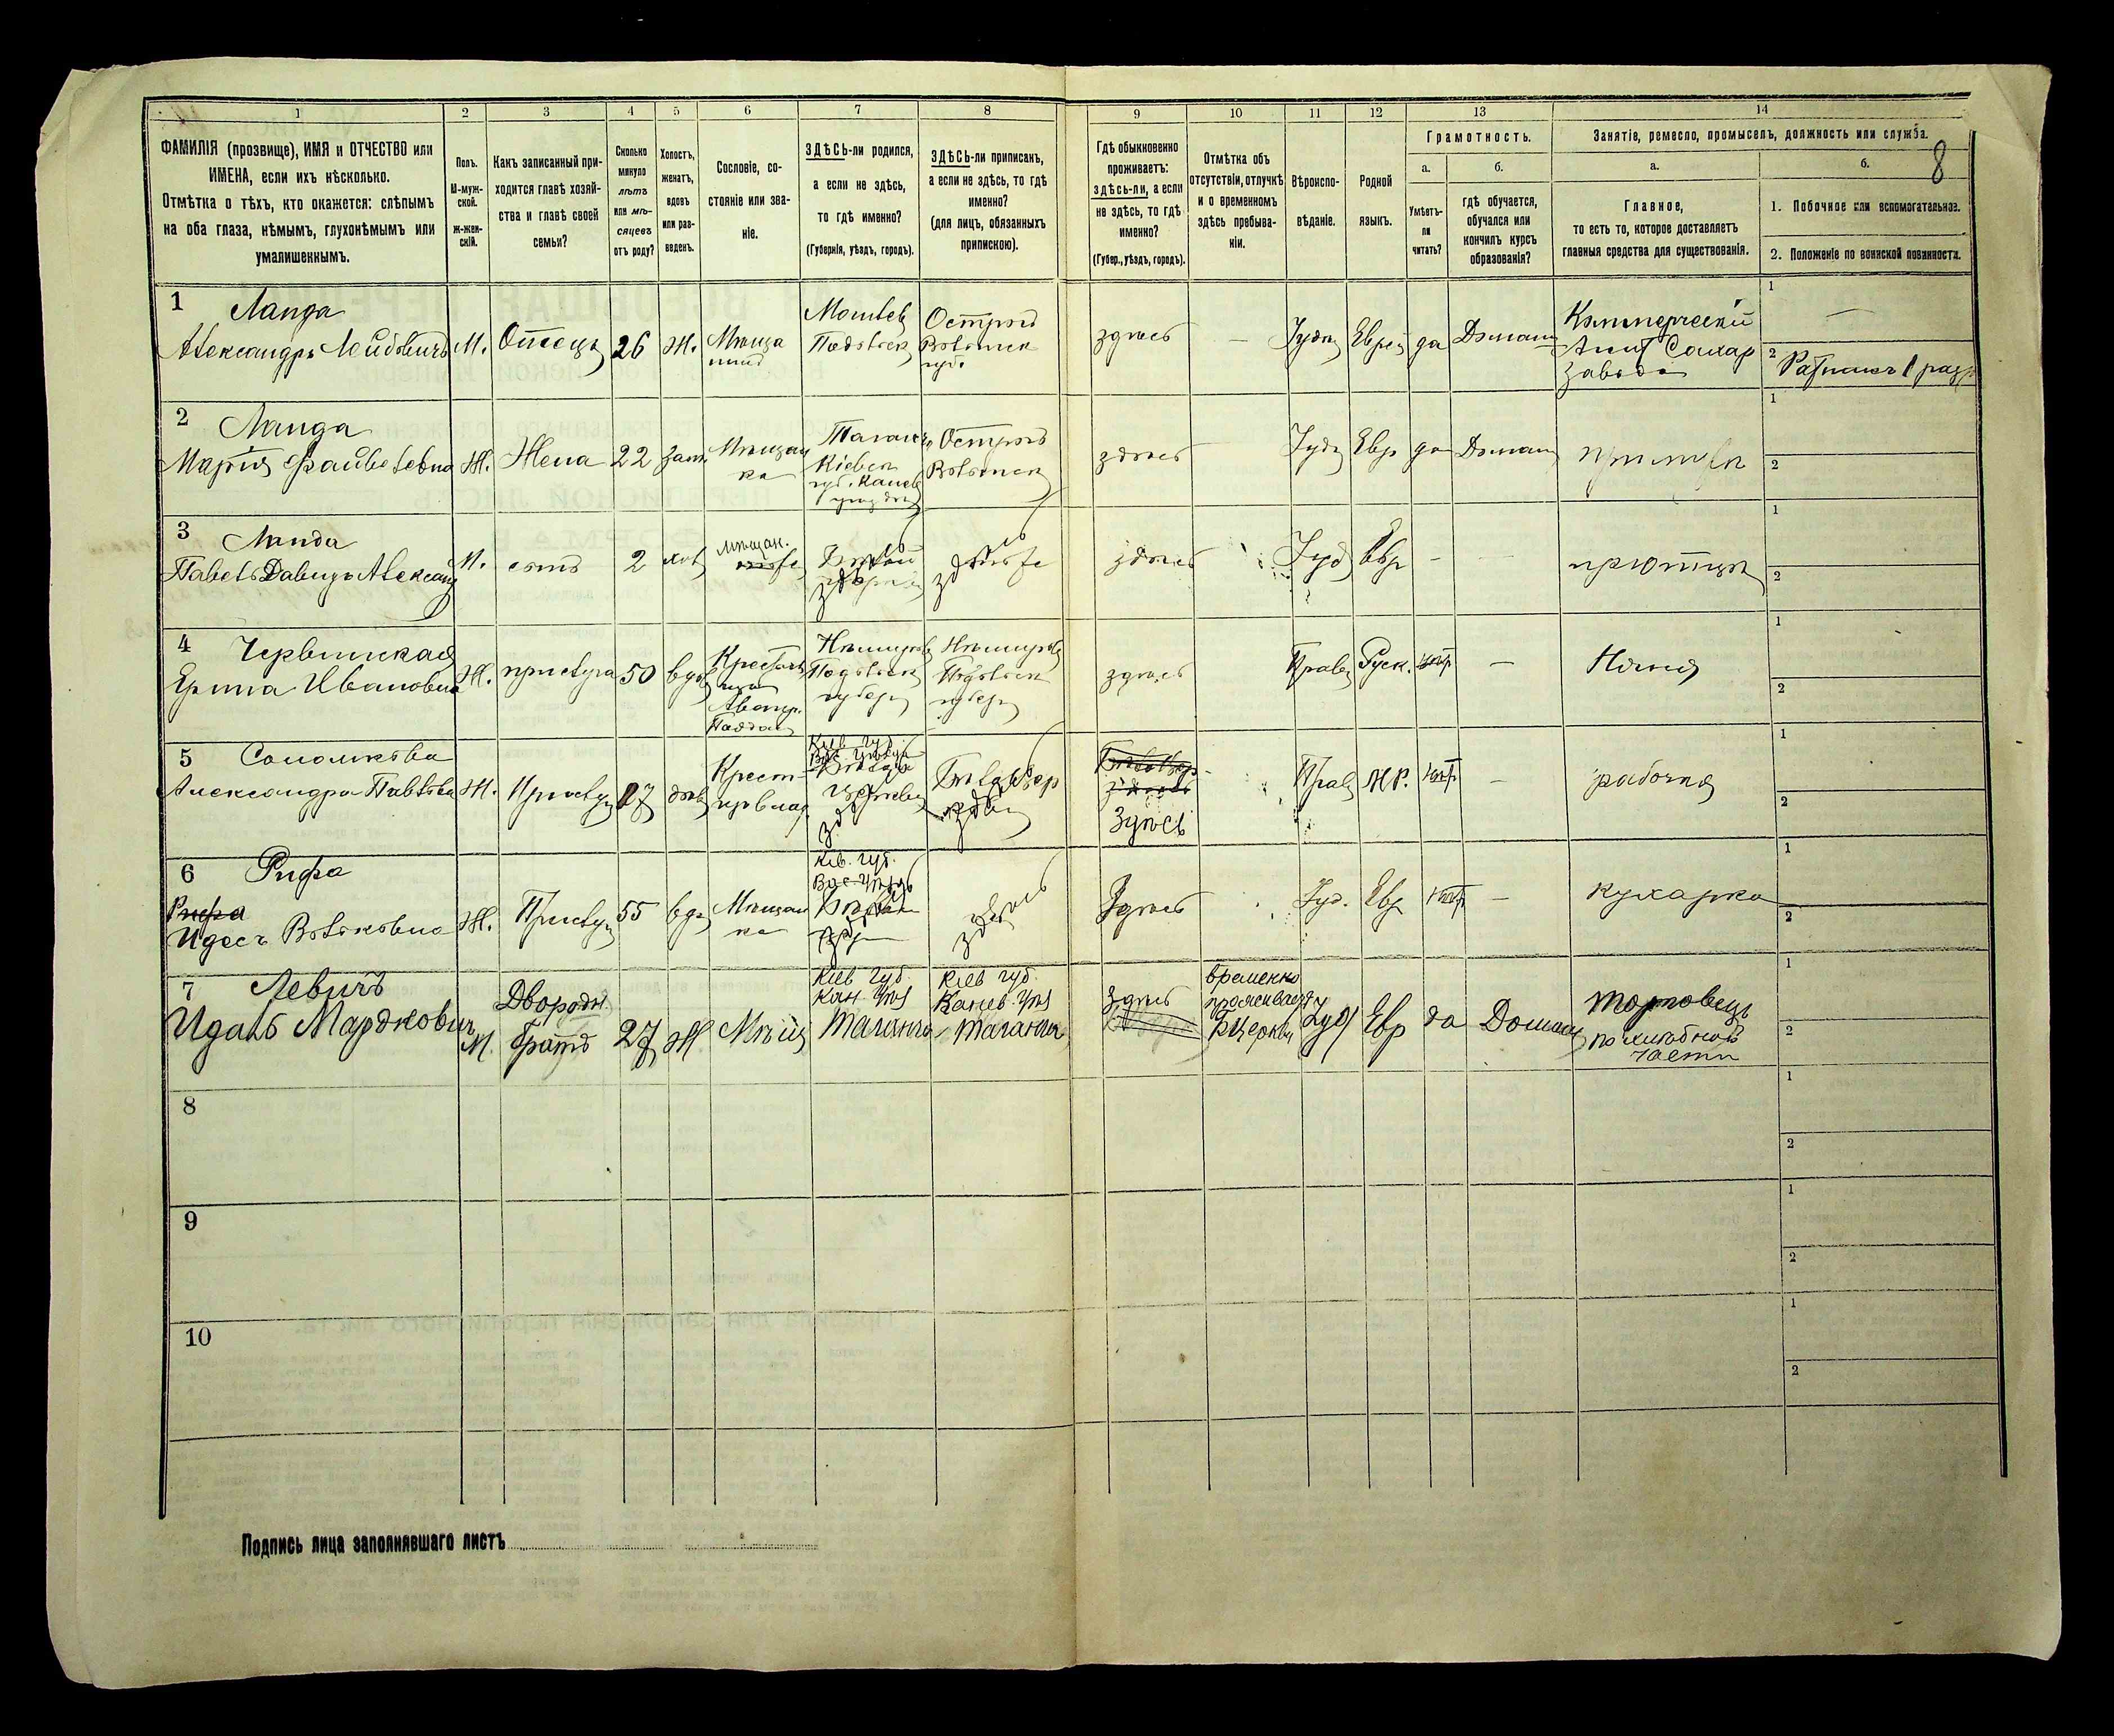 1
2
3
4
5
6
7
8
9
10
11
12
13
14
8
ФАМИЛІЯ (прозвище), ИМЯ и ОТЧЕСТВО или
ИМЕНА, если ихъ нѣсколько.
Отмѣтка о тѣхъ, кто окажется: слѣпымъ
на оба глаза, нѣмымъ, глухонѣмымъ или
умалишеннымъ.
Полъ.
М-муж-
ской.
Ж-жен-
скій.
Какъ записанный при-
ходится главѣ хозяй-
ства и главѣ своей
семьи?
Сколько
минуло
лѣтъ
или мѣ-
сяцевъ
отъ роду?
Холостъ,
женатъ,
вдовъ
или раз-
веденъ.
Сословіе, со-
стояніе или зва-
ніе.
ЗДѢСЬ-ли родился,
а если не здѣсь,
то гдѣ именно?
(Губернія, уѣздъ, городъ).
ЗДѢСЬ-ли приписанъ,
а если не здѣсь, то гдѣ
именно?
(для лицъ, обязанныхъ
припискою).
Гдѣ обыкновенно
проживаетъ:
здѣсь-ли, а если
не здѣсь, то гдѣ
именно?
(Губер., уѣздъ, городъ).
Отмѣтка объ
отсутствіи, отлучкѣ
и о временномъ
здѣсь пребыва-
ніи.
Вѣроиспо-
вѣданіе.
Родной
языкъ.
Грамотность.
а.
Умѣетъ-
ли
читать?
б.
гдѣ обучается,
обучался или
кончилъ курсъ
образованія?
Занятіе, ремесло, промыселъ, должность или служба.
а.
Главное,
то есть то, которое доставляетъ
главныя средства для существованія.
б.
1. Побочное или вспомогательное.
2. Положеніе по воинской повинности.
1 Ланда
Александръ Лейбовичъ
М.
Отецъ
26
Ж.
Мѣща
нинъ
Подольск
Острогъ
Волынск
губ.
здѣсь
—
Іудей
Еврей
да
Домаш
Коммерческій
Агент Сахар
Завода
1
—
2 Ратникъ 1 разр
2 Ланда
Марія Файвелевна
Ж.
Жена
22
Зам
Мѣщан
ка
Таганч
Кіевск
губ. Канев
уѣзда
Острогъ
Волынск
здѣсь
Іуд
Евр
да
Домаш
при муж
1
2
3 Ланда
Павелъ Давидъ Александ
М.
сынъ
2
хол
мѣщан.
здѣсь
Іуд
Евр
—
—
при отцѣ
1
2
4 Червинская
Ерина Ивановна
Ж.
прислуга
50
вдов
Немиров
Подольск
губерн
Немиров
Подольск
губерн
здѣсь
Прав
Руск.
негр
—
Няня
1
2
5 Соломкова
Александра Павловна
Ж.
Прислуг
17
дѣв
Крест-
Кіев. Губ.
Вас. Уѣзда
здѣсь
Прав
М.Р.
негр
—
рабочая
1
2
6 Рифа
Рифа
Идесъ Волковна
Ж.
Прислуг
55
вдо
Мѣщан
ка
Кіев. Губ.
Вас. Уѣзд
здѣсь
Здѣсь
Іуд.
Евр
негр
—
кухарка
1
2
7 Левичъ
Идаль Мардковичъ
М.
Двородн.
братъ
27
Ж
Мѣщ
Кіев Губ.
Кан. Уѣз
Таганча
Кіев губ.
Канев. Уѣз
Таганча
здѣсь
временно
проживает
БЦеркви
Іуд
Евр
да
Домаш
торговецъ
по хлѣбной
части
1
2
8
1
2
9
1
2
10
1
2
Подпись лица заполнявшаго листъ